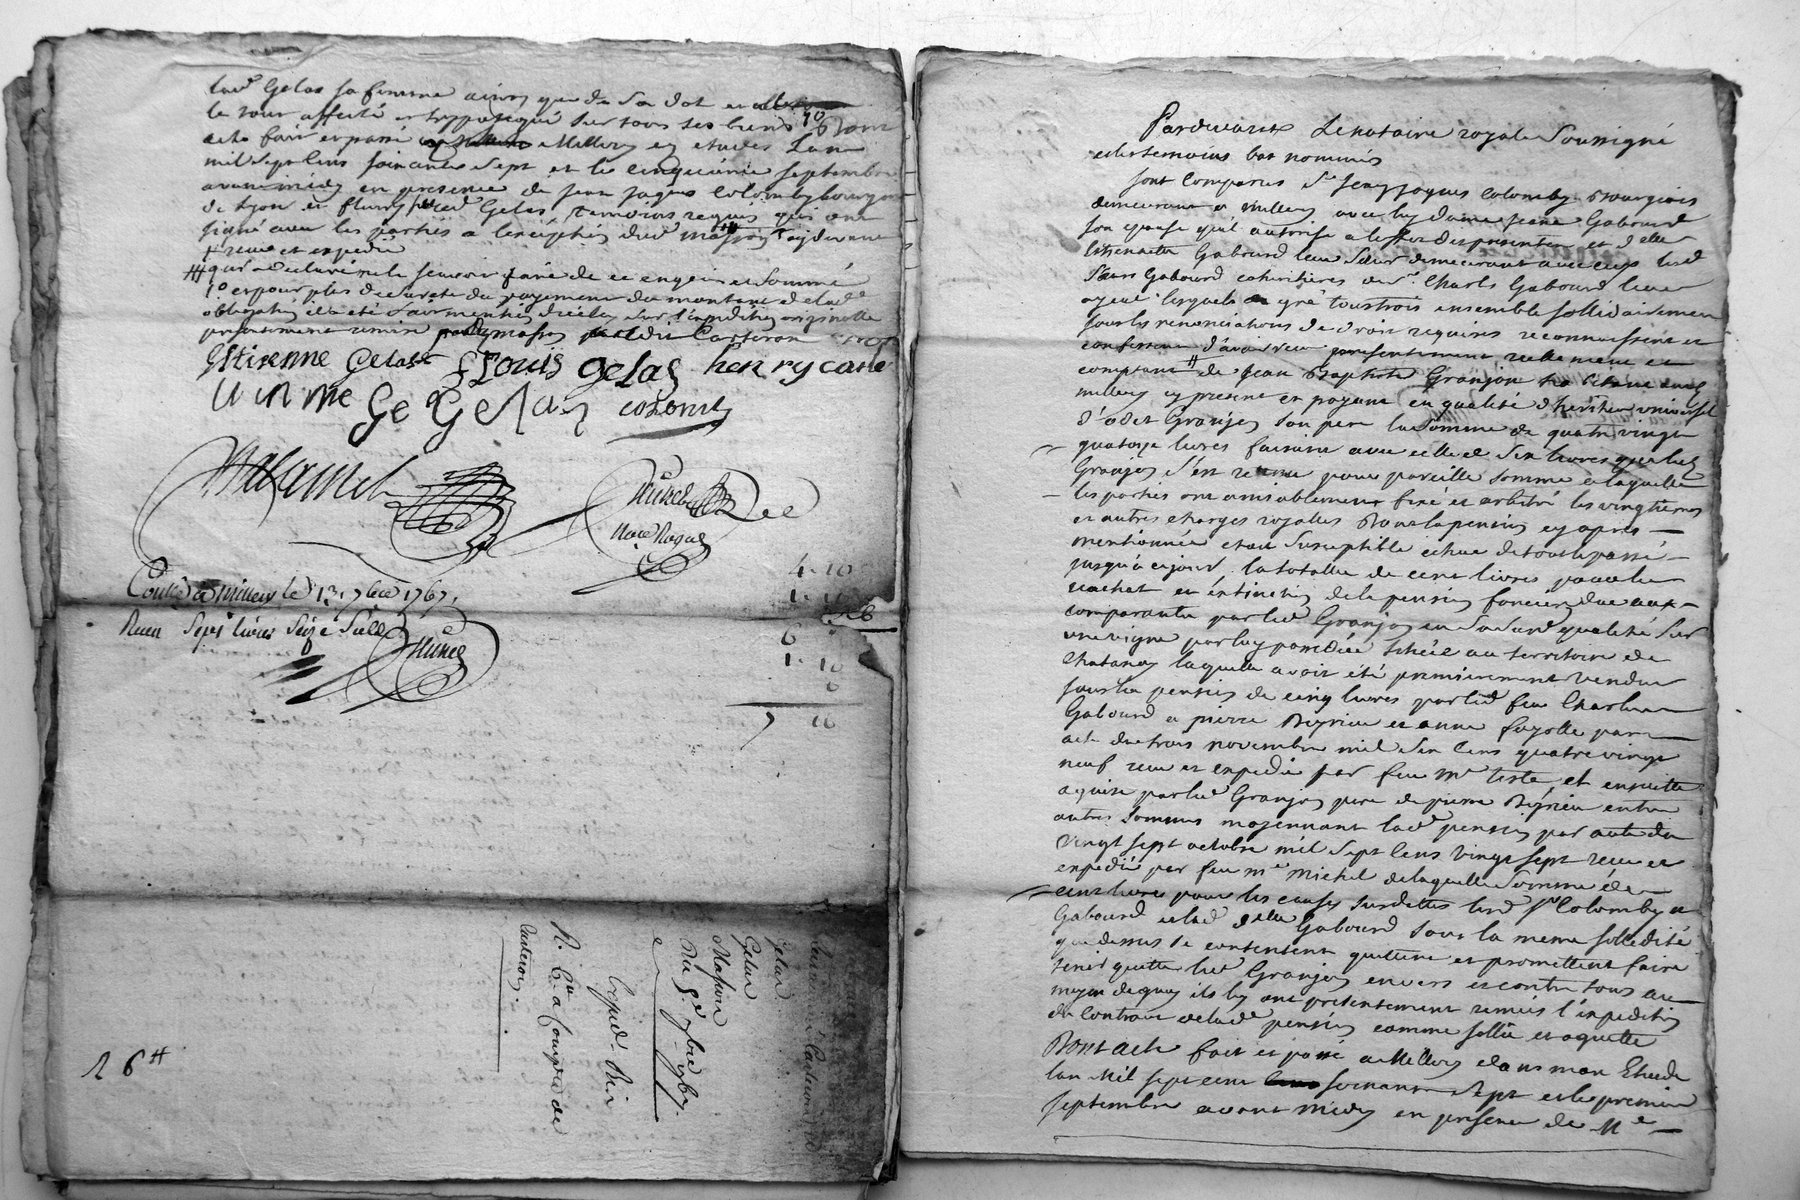 lad.e Gelas sa femme ainsy que de sa dot
le tout affecté et hyppotequé sur tous ses biens 1º Dont
acte fait et passé a Millery en etudes Lan
mil sept cens soixante sept et le cinquieme septembre
avant midy en presence de jean jaques Colomby bourgeois
de Lyon et fleury Gelas temoins requis qui ont
signé avec les parties a lexception dud. Masson
+ receu et expedié
# qui a declaré ne le scavoir faire de ce enquis et sommé
1º et pour plus de sureté du payement du montant de lad.e
obligation il a été sur l'expedition originelle
presentement remise par led. masson aud. Carteron
Estienne Gelas f Louis gelas henry carte
Ge Gelas colomby
Note Royal
4. 10
Collé a millery le 13. 7bre 1767.
Receu Sept livres Seize Sols
6
1. 10
6
7 16
Gelas
Gelas
Masson
Du 5.e 7bre 1767
Expéd. Bon
R. C.on a compte de
Carteron
R 6#
Pardevant Le notaire royal Soussigné
et les temoins bas nommés
sont Comparus S.r Jean Jaques Colomby Bourgeois
demeurant a millery avec luy dame jeane Gabourd
son epouse qu'il autorise a leffet des presentes et d.elle
Gabourd leur soeur demeurant avec eux lesd.
Soeurs Gabourd coheritieres de S.r Charles Gabourd leur
ayeul lesquels de gré tous trois ensemble sollidairement
sous les renonciations de droit requises reconnoissent et
confessent d'avoir receu presentement reellement et
comptant # de Jean Baptiste Granjon
millery cy present et payant en qualité d'heritier universel
d'odet Granjon son pere la somme de quatre vingt
quatorze livres faisant avec celle de Six livres que led.
Granjon s'est retenu pour pareille somme a laquelle
les parties ont amiablement fixé et arbitré les vingtiemes
et autres charges royalles Dont la pension cy apres
mentionnée etoit susceptible echue de tout le passé
jusqu'à ce jour. la totalle de cent livres pour le
rachat et extinction de la pension fonciere due aux
comparants par led. Granjon en sa susd. qualité sur
une vigne par luy possedée scituée au territoire de
Chatanay laquelle avoit eté premierement vendue
sous la pension de cinq livres par led. feu Charles
Gabourd a pierre Bigrieu et anne fayolle par
acte du trois novembre mil six cens quatre vingt
neuf receu et expedié par feu M.e teste, et ensuitte
aquise par led. Granjon pere de pierre Bigrieu entre
autres sommes moyennant lad.e pension par acte du
vingt sept octobre mil sept cens vingt sept receu et
expedié par feu M.e Michel de laquelle somme de
cent livres pour les causes susdittes lesd. S.r Colomby et
Gabourd et lad. d.elle Gabourd sous la meme sollidité
que dessus se contentent quittent et promettent faire
tenir quitte led. Granjon envers et contre tous au
moyen dequoy ils luy ont presentement remis l'expedition
du Contract de lad.e pension comme sollue et aquittée
Dont acte fait et passé a Millery dans mon Etude
Lan Mil sept cent soixante sept et le premier
septembre avant midy en presence de M.e